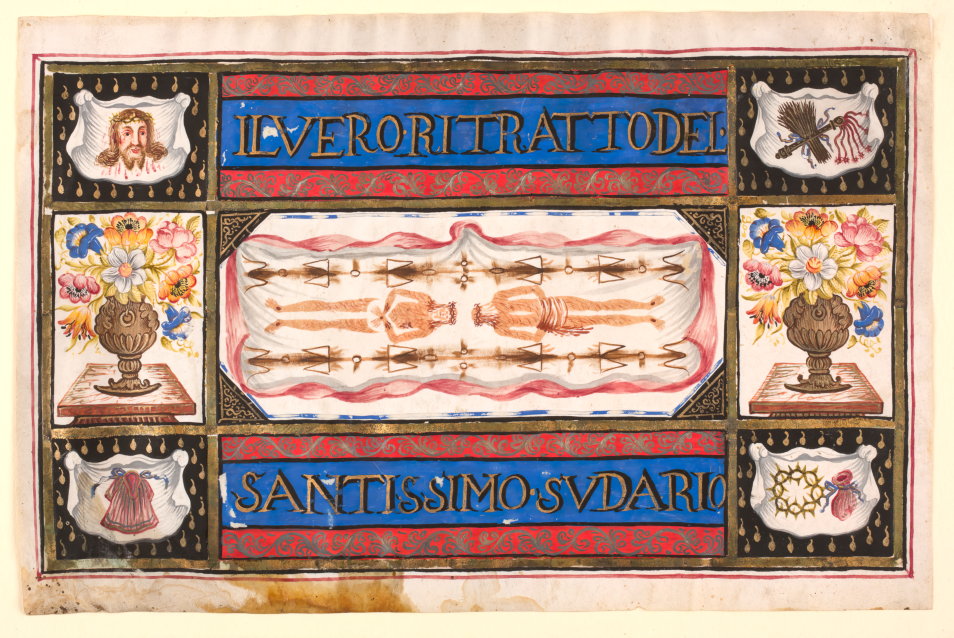 IL VERO·RITRATTO DEL·
SANTISSIMO·SVDARIO